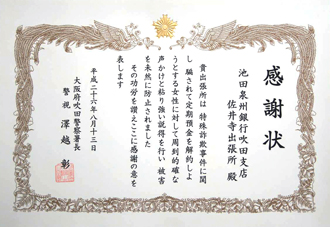 感謝状
池田泉州銀行吹田支店
佐井寺出張所 殿
貴出張所は 特殊詐欺事件に関
し 騙されて定期預金を解約しよ
うとする女性に対して周到的確な
声かけと粘り強い説得を行い 被害
を未然に防止されました
その功労を讃えここに感謝の意を
表します
平成二十六年八月十三日
大阪府吹田警察署長
警視 澤越 彰